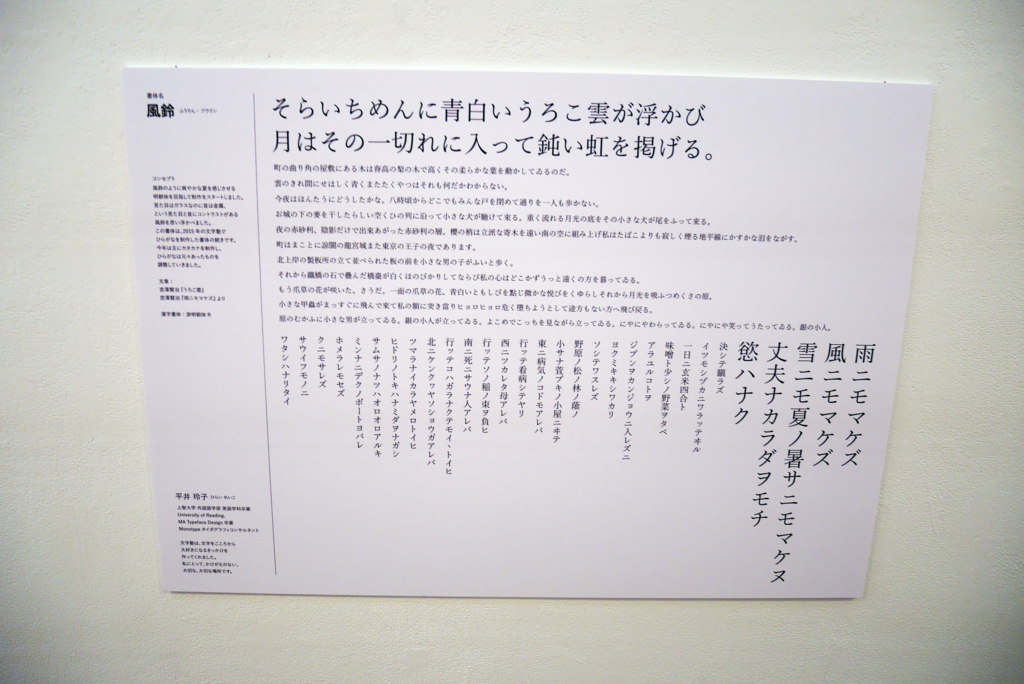 書体名
風鈴 ふうりん・フウリン
コンセプト
風鈴のように爽やかな夏を感じさせる
明朝体を目指して制作をスタートしました。
見た目はガラスなのに音は金属、
という見た目と音にコントラストがある
風鈴を思い浮かべました。
この書体は、2015 年の文字塾で
ひらがなを制作した書体の続きです。
今年は主にカタカナを制作し、
ひらがなは元々あったものを
調整していきました。
文章：
宮澤賢治『うろこ雲』
宮澤賢治『雨ニモマケズ』より
漢字書体：游明朝体 R
平井 玲子 ひらい れいこ
上智大学 外国語学部 英語学科卒業
University of Reading,
MA Typeface Design 卒業
Monotype タイポグラフィコンサルタント
文字塾は、文字をこころから
大好きになるきっかけを
作ってくれました。
私にとって、かけがえのない、
大切な、大切な場所です。
そらいちめんに青白いうろこ雲が浮かび
月はその一切れに入って鈍い虹を掲げる。
町の曲り角の屋敷にある木は脊高の梨の木で高くその柔らかな葉を動かしてゐるのだ。
雲のきれ間にせはしく青くまたたくやつはそれも何だかわからない。
今夜はほんたうにどうしたかな。八時頃からどこでもみんな戸を閉めて通りを一人も歩かない。
お城の下の麥を干したらしい空くひの列に沿って小さな犬が馳けて来る。重く流れる月光の底をその小さな犬が尾をふって来る。
夜の赤砂利、陰影だけで出来あがった赤砂利の層。櫻の梢は立派な寄木を遠い南の空に組み上げ私はたばこよりも寂しく煙る地平線にかすかな泪をながす。
町はまことに諒闇の龍宮城また東京の王子の夜であります。
北上岸の製板所の立て並べられた板の前を小さな男の子がふいと歩く。
それから鐵橋の石で疊んだ橋臺が白くほのびかりしてならび私の心はどこかずうっと遠くの方を慕ってゐる。
もう爪草の花が咲いた。さうだ。一面の爪草の花、青白いともしびを點じ微かな悦びをくゆらしそれから月光を吸ふつめくさの原。
小さな甲蟲がまっすぐに飛んで来て私の額に突き當りヒョロヒョロ危く墮ちようとして途方もない方へ飛び戻る。
原のむかふに小さな男が立ってゐる。銀の小人が立ってゐる。よこめでこっちを見ながら立ってゐる。にやにやわらってゐる。にやにや笑ってうたってゐる。銀の小人。
雨ニモマケズ
風ニモマケズ
雪ニモ夏ノ暑サニモマケヌ
丈夫ナカラダヲモチ
慾ハナク
決シテ瞋ラズ
イツモシヅカニワラッテヰル
一日ニ玄米四合ト
味噌ト少シノ野菜ヲタベ
アラユルコトヲ
ジブンヲカンジョウニ入レズニ
ヨクミキキシワカリ
ソシテワスレズ
野原ノ松ノ林ノ蔭ノ
小サナ萱ブキノ小屋ニヰテ
東ニ病気ノコドモアレバ
行ッテ看病シテヤリ
西ニツカレタ母アレバ
行ッテソノ稲ノ束ヲ負ヒ
南ニ死ニサウナ人アレバ
行ッテコハガラナクテモイヽトイヒ
北ニケンクヮヤソショウガアレバ
ツマラナイカラヤメロトイヒ
ヒドリノトキハナミダヲナガシ
サムサノナツハオロオロアルキ
ミンナニデクノボートヨバレ
ホメラレモセズ
クニモサレズ
サウイフモノニ
ワタシハナリタイ